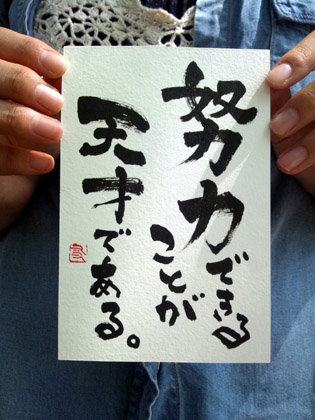 努力できる
ことが
天才である。